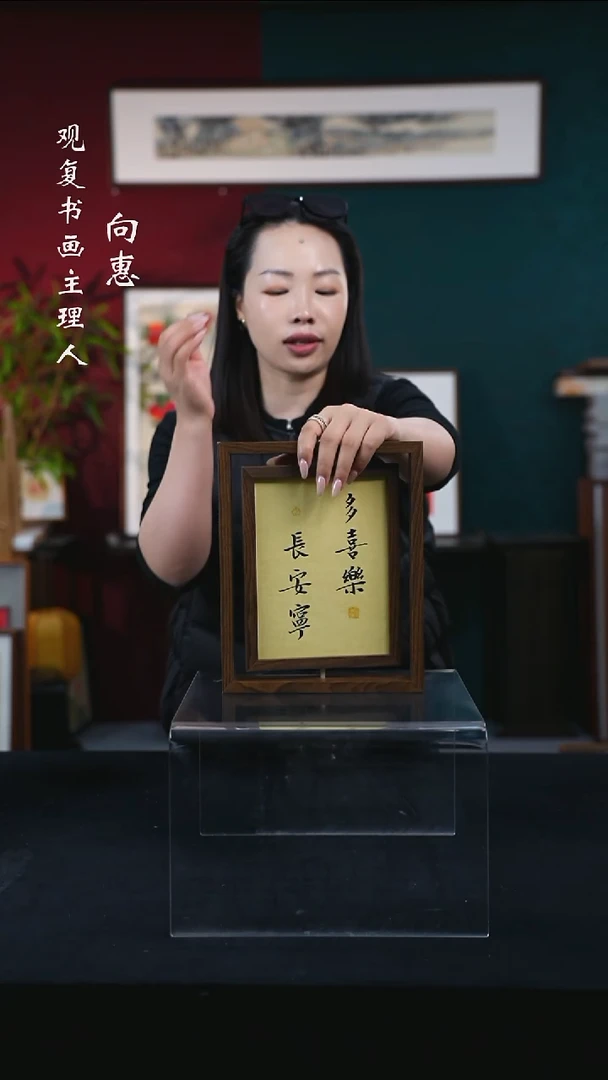 向惠
观复书画主理人
多喜樂
長安寧